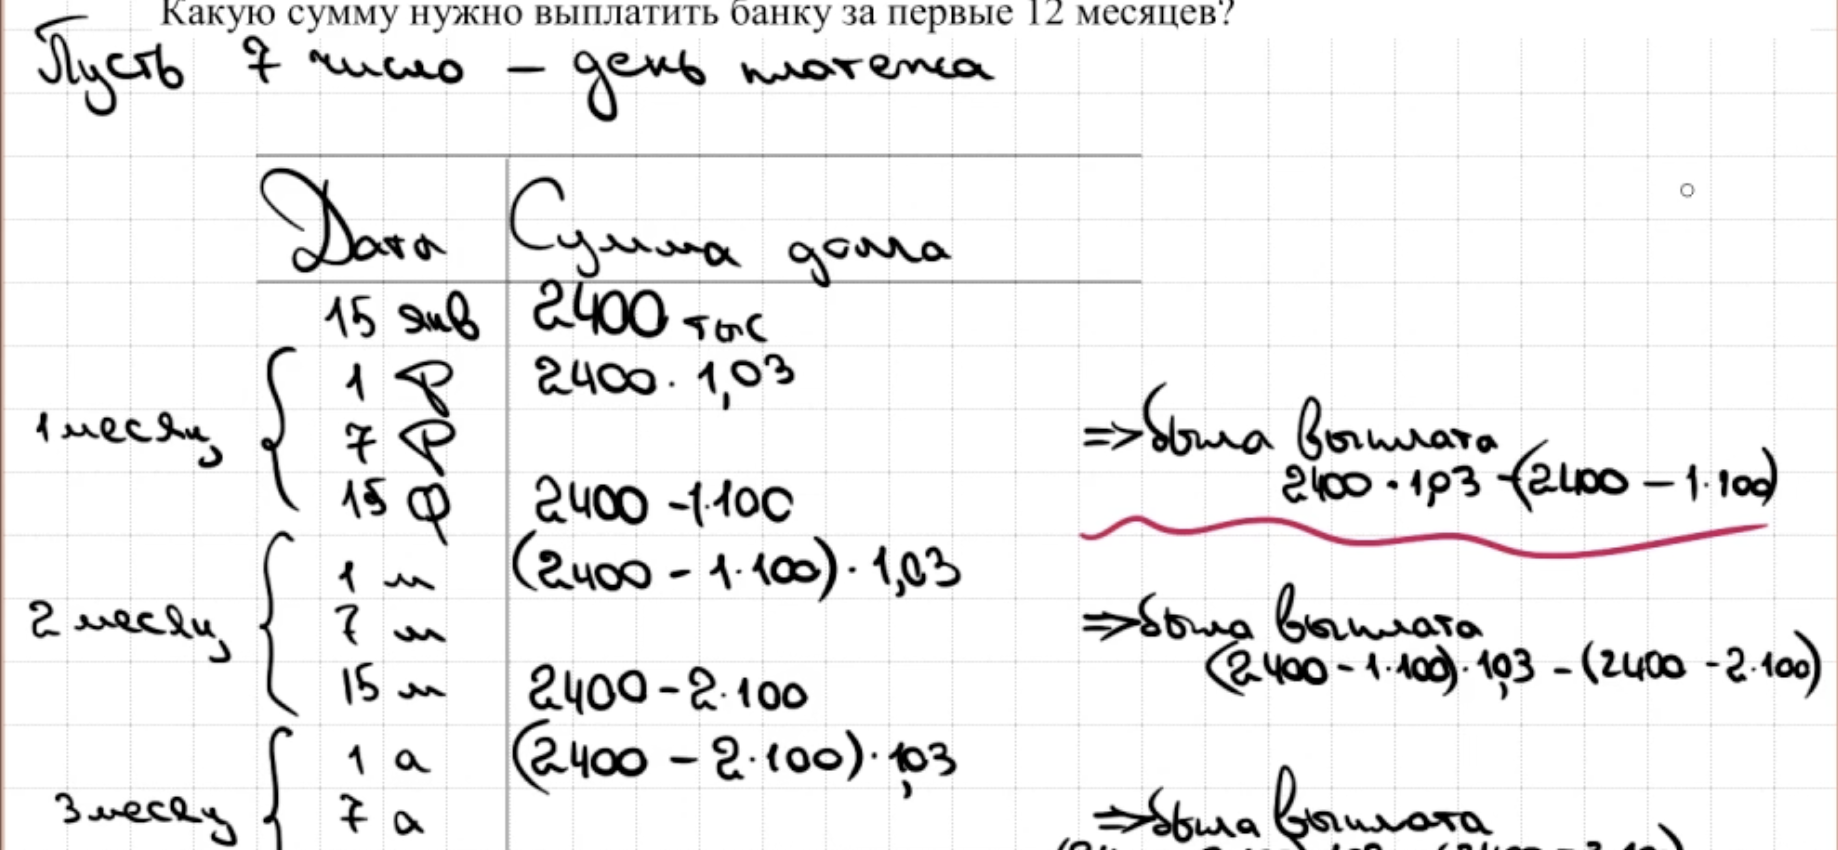 Какую сумму нужно выплатить банку за первые 12 месяцев?
Пусть 7 число – день платежа
Дата Сумма долга
15 янв 2400 тыс
1 ф 2400 · 1,03
1 месяц 7 ф ⇒ была выплата
2400 · 1,03 - (2400 - 1·100)
15 ф 2400 - 1·100
1 м (2400 - 1·100) · 1,03
2 месяц 7 м ⇒ была выплата
(2400 - 1·100) · 1,03 - (2400 - 2·100)
15 м 2400 - 2·100
1 а (2400 - 2·100) · 1,03
3 месяц 7 а ⇒ была выплата